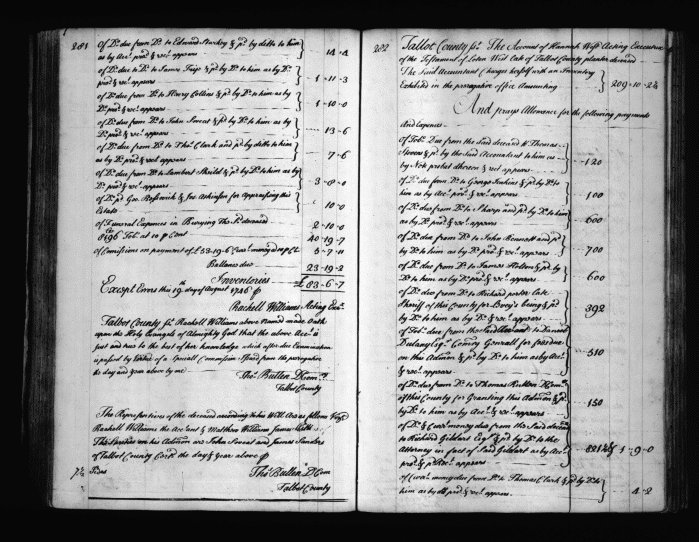 281
of Do. due from Do. to Edward Starkey & pd. by debts to him
as by Accot. prov'd & rect. appears 14-4
of Do. due to Do. to James & pd. by Do. to him as by Do.
prov'd & rect. appears 1-11-3
of Do. due from Do. to Henry Collins & pd. by Do. to him as by
Do. prov'd & rect. appears 1-10-0
of Do. due from Do. to John Sweat & pd. by Do. to him as by
Do. prov'd & rect. appears 13-6
of Do. due from Do. to Thos. Clark and pd. by debts to him
as by Do. prov'd and rect. appears 7-6
of Do. due from Do. to Lambert & pd. by Do. to him as by
Do. prov'd & rect. appears 3-8-0
of Do. pd. Geo. & Jos. Atkinson for Appraising this
Estate 10-0
of Funeral Expences in Burying The sd. deceased 2-10-0
8196 Tob. at 10 p Cent 40-19-7
of Comissions on payment of £53-19-6 Curr. money at 10 p Ct. 5-7-11
Ballance due 23-19-2
Inventories £83-6-7
Except Errors this 19th day of August 1746 p
Rachell Williams Acting Exx.
Talbot County sst. Rachell Williams above Named made Oath
upon the Holy Evangels of Almighty God that the above Acct. is
just and true to the best of her knowledge which after due Examination
is passed by Virtue of a Speciall Commission Issued from the prerogative
the day and year above by me
Thos. Bullen D Comry.
Talbot County
The Representatives of the deceased according to his Will are as follows
Rachell Williams the Acctant & Matthew William James
The Sureties on his Admon are John Sweat and James Sanders
of Talbot County Certd. the day & year above p
7½ Sides Thos. Bullen D Com
Talbot County
282
Talbot County sst. The Account of Hannah West Acting Executrix
of the Testament of Loten West late of Talbot County planter deceased
The Said Accountant Charges herself with an Inventory
Exhibited in the prerogative office Amounting 209-10-2½
And prays Allowance for the following payments
And Expences
of Tob. Due from the Said deceased to Thomas
Stevens & pd. by the Said Accountant to him as
by Note probat thereon & rect. appears 120
of Do. due from Do. to George Jenkins & pd. by Do. to
him as by Acct. prov'd & rect. appears 100
of Do. due from Do. to Sharp and pd. by Do. to him
as by Do. prov'd & rect. appears 600
of Do. due from Do. to John Bennett and pd.
by Do. to him as by Do. prov'd & rect. appears 700
of Do. due from Do. to James Holton & pd. by
Do. to him as by Do. prov'd & rect. appears 600
of Do. due from Do. to Richard porter Late
Sheriff of this County for Levy's being & pd.
by Do. to him as by Do. & rect. appears 392
of Tob. due from the Said deceased to Daniel
Dulany Esqr. Comry. Generall for fees due
on this Admon & pd. by Do. to him as by Acct.
& rect. appears 510
of Do. due from Do. to Thomas Bullen D Comry.
of this County for Granting this Admon & pd.
by Do. to him as by Acct. & rect. appears 150
of Do. & Curr. money due from the Said deceased
to Richard Gildart Esqr. & pd. by Do. to the
Attorney in fact of Said Gildart as by Acct.
prov'd & rect. appears 1-9-0
of Curr. money due from Do. to Thomas Clark & pd. by Do. to
him as by Do. prov'd & rect. appears 4-2